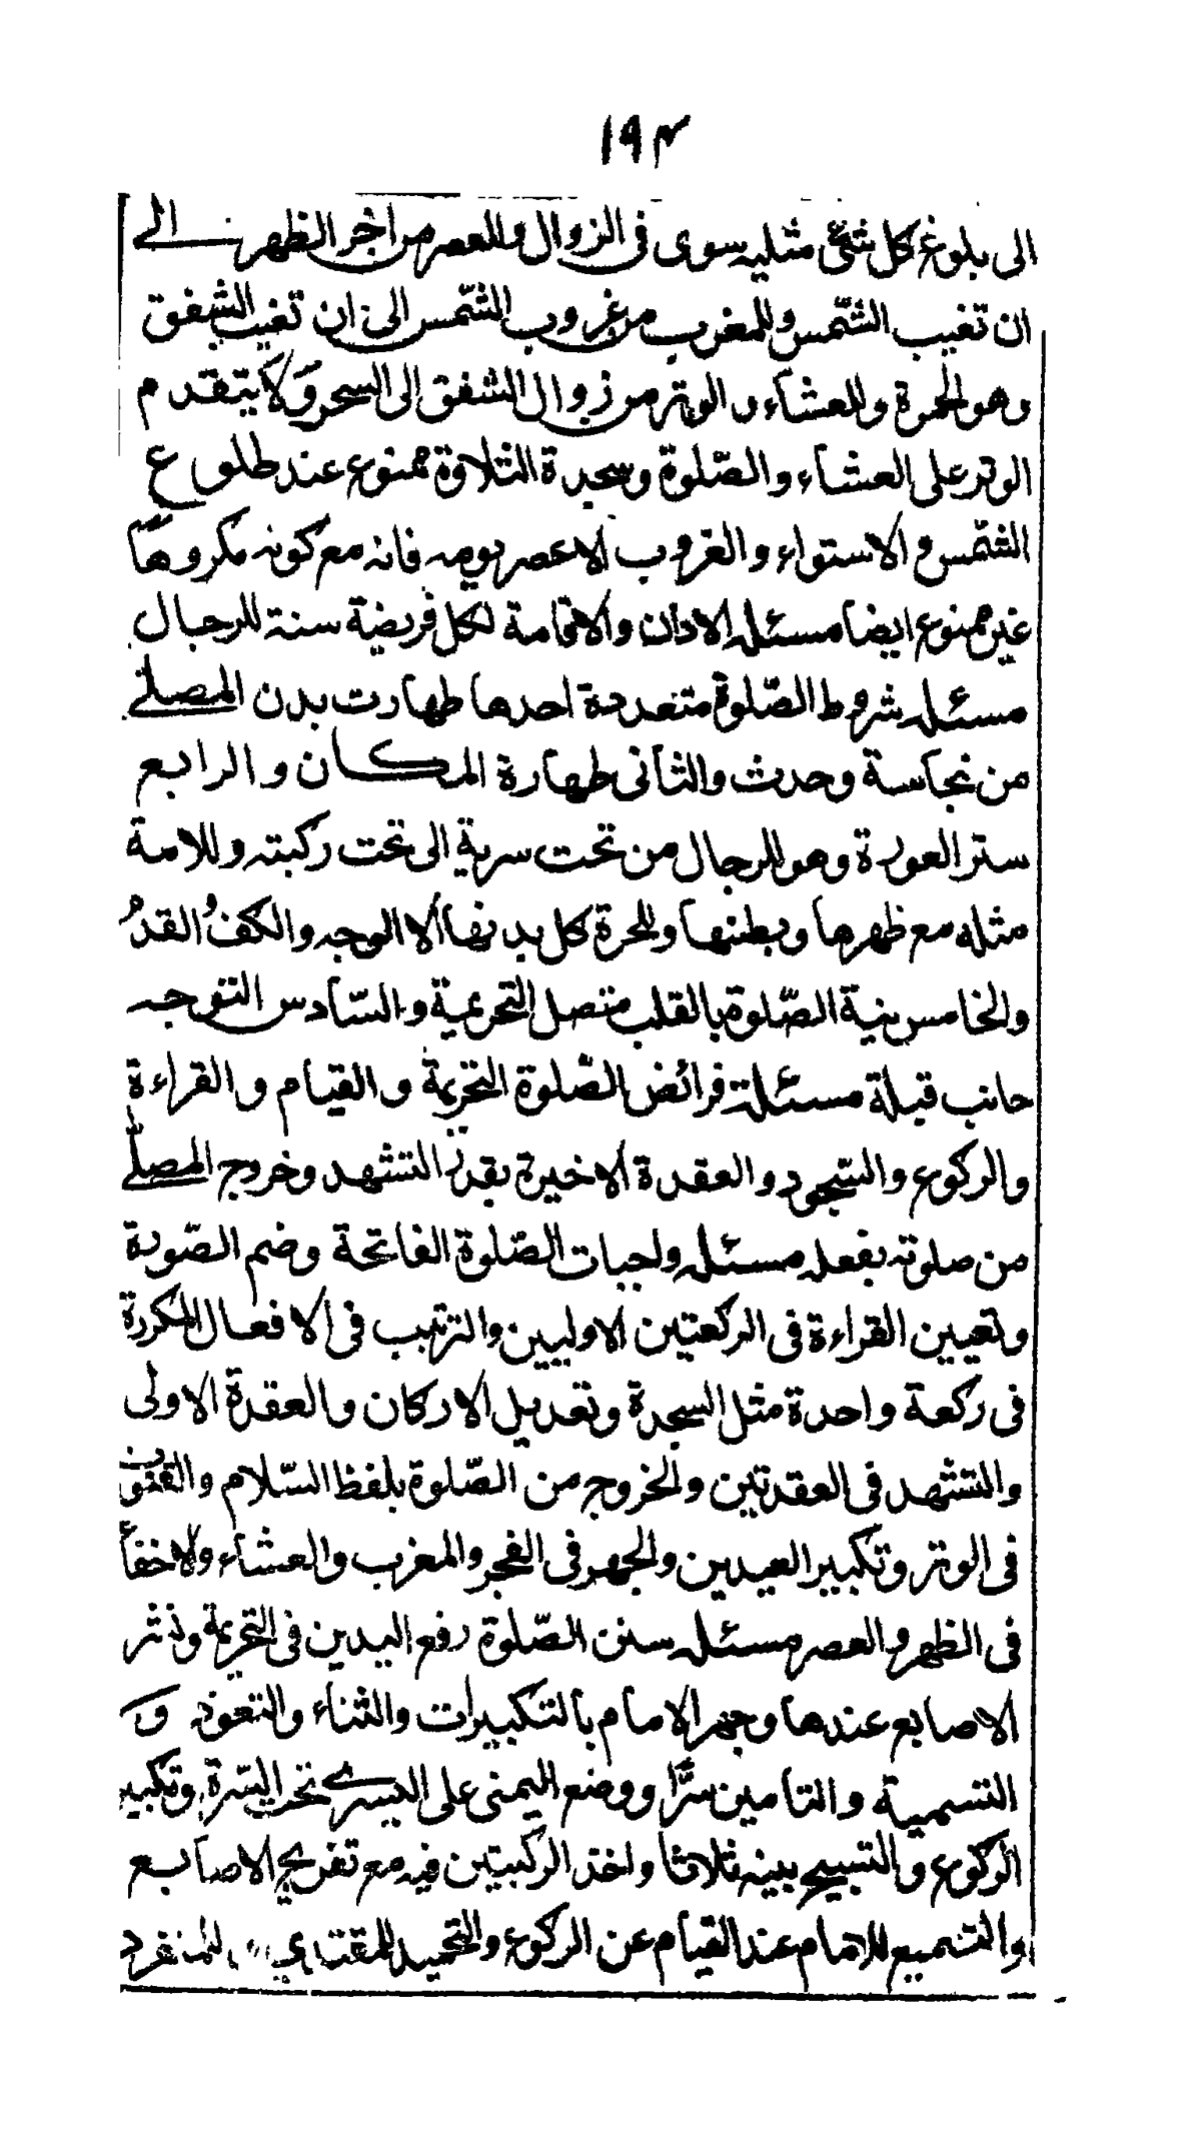 ١٩٣
الى بلوغ كل شئ مثليه سوى فى الزوال وللعصر من اخر الظهر الے
ان تغيب الشّمس وللمغرب من غروب الشّمس الى ان تغيب الشفق
وهو الحمرة وللعشاء والوتر من زوال الشفق الى السحر وَلا يتقدم
الوتر على العشاء والصّلوة وسجدة التلاوة ممنوع عند طلوع
الشّمس والاستواء والغروب الا عصر يومه فانه مع كونه مكروهاً
غير ممنوع ايضا مسئله الاذان والاقامة لكل فريضة سنة للرجال
مسئله شروط الصّلوة متعددة احدها طهارت بدن المصلے
من نجاسة وحدث والثانى طهارة المكان والرابع
ستر العورة وهو للرجال من تحت سرية الى تحت ركبته وللامة
مثله مع ظهرها وبطنها وللحرة كل بدنها الا الوجه والكف والقدم
والخامس نية الصّلوة بالقلب متصل التحريمية والسّادس التوجه
جانب قبلة مسئلة فرائض الصّلوة التحريمة والقيام والقراءة
والركوع والسّجود والعقدة الاخيرة بقدر التشهد وخروج المصلّے
من صلوته بفعله مسئله واجبات الصّلوة الفاتحة وضم الصّورة
وتعيين القراءة فى الركعتين الاوليين والترتيب فى الافعال المكررة
فى ركعة واحدة مثل السجدة وتعديل الاركان والعقدة الاولى
والتشهد فى العقدتين والخروج من الصّلوة بلفظ السّلام والقنوت
فى الوتر وتكبير العيدين والجهر فى الفجر والمغرب والعشاء والاخفأ
فى الظهر والعصر مسئله سنن الصّلوة رفع اليدين فى التحريمة ونثر
الاصابع عندها وجهر الامام بالتكبيرات والثناء والتعوذ و
التسمية والتامين سرًّا ووضع اليمنى على اليسرے تحت السّرة وتكبير
الركوع والتسبيح بينه ثلاثا واخذ الركبتين فيه مع تفريج الاصابع
والتسميع للامام عند القيام عن الركوع والتحميد للمقتدي المنفرد